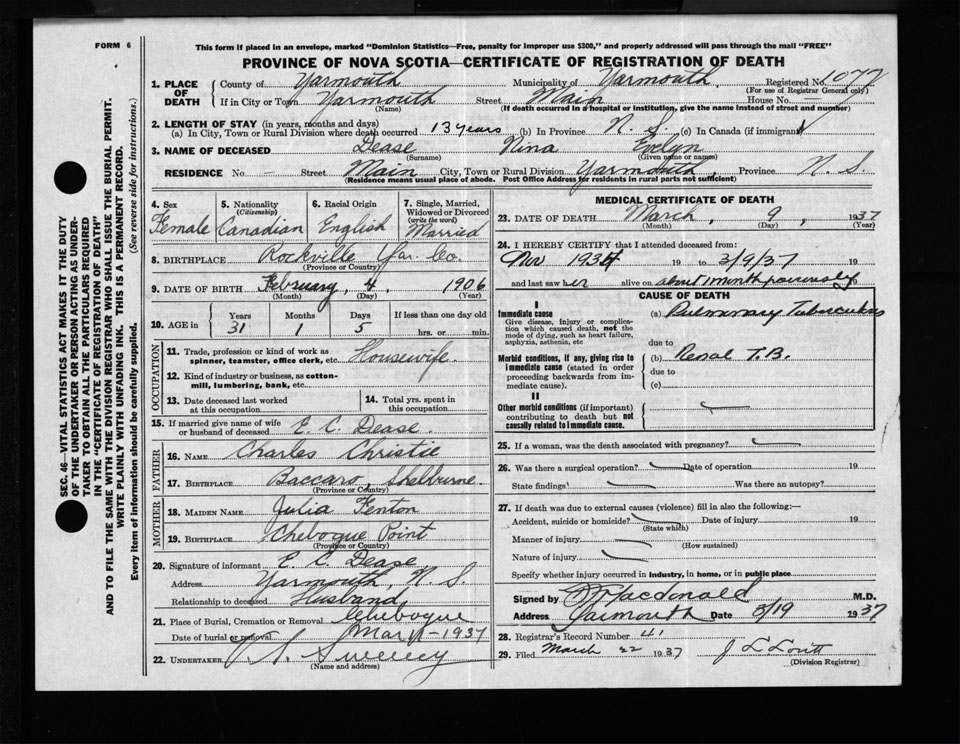 FORM 6
This form if placed in an envelope, marked "Dominion Statistics—Free, penalty for improper use $300," and properly addressed will pass through the mail "FREE"
PROVINCE OF NOVA SCOTIA—CERTIFICATE OF REGISTRATION OF DEATH
1. PLACE OF DEATH
County of Yarmouth Municipality of Yarmouth, Registered No. 1077
(For use of Registrar General only)
If in City or Town Yarmouth Street Main House No. —
(Name) (If death occurred in a hospital or institution, give the name instead of street and number)
2. LENGTH OF STAY (in years, months and days)
(a) In City, Town or Rural Division where death occurred 13 years (b) In Province N. S. (c) In Canada (if immigrant)
3. NAME OF DECEASED Dease Nina Evelyn
(Surname) (Given name or names)
RESIDENCE No — Street Main City, Town or Rural Division Yarmouth, Province N. S.
(Residence means usual place of abode. Post Office Address for residents in rural parts not sufficient)
4. Sex Female
5. Nationality (Citizenship) Canadian
6. Racial Origin English
7. Single, Married, Widowed or Divorced (write the word) Married
8. BIRTHPLACE Rockville Yar. Co.
(Province or Country)
9. DATE OF BIRTH February, 4, 1906
(Month) (Day) (Year)
10. AGE in Years 31 Months 1 Days 5 If less than one day old
hrs. or min.
OCCUPATION
11. Trade, profession or kind of work as spinner, teamster, office clerk, etc. Housewife.
12. Kind of industry or business, as cotton-mill, lumbering, bank, etc.
13. Date deceased last worked at this occupation
14. Total yrs. spent in this occupation
15. If married give name of wife or husband of deceased E. C. Dease.
FATHER
16. NAME Charles Christie
17. BIRTHPLACE Baccaro, Shelburne.
(Province or Country)
MOTHER
18. MAIDEN NAME Julia Fenton
19. BIRTHPLACE Chebogue Point
(Province or Country)
20. Signature of informant E. C. Dease
Address Yarmouth, N. S.
Relationship to deceased Husband
21. Place of Burial, Cremation or Removal Chebogue
Date of burial or removal Mar 11-1937
22. UNDERTAKER Sweeney
(Name and address)
MEDICAL CERTIFICATE OF DEATH
23. DATE OF DEATH March, 9, 1937
(Month) (Day) (Year)
24. I HEREBY CERTIFY that I attended deceased from:
Nov 1934 19 to 3/9/37 19
and last saw her alive on about 1 month previously 19
CAUSE OF DEATH
I
Immediate cause
Give disease, injury or complication which caused death, not the mode of dying, such as heart failure, asphyxia, asthenia, etc
(a) Pulmonary Tuberculosis
due to
Morbid conditions, if any, giving rise to immediate cause (stated in order proceeding backwards from immediate cause).
(b) Renal T.B.
due to
(c)
II
Other morbid conditions (if important) contributing to death but not causally related to immediate cause.
25. If a woman, was the death associated with pregnancy?
26. Was there a surgical operation? Date of operation 19
State findings Was there an autopsy?
27. If death was due to external causes (violence) fill in also the following:—
Accident, suicide or homicide? Date of injury 19
(State which)
Manner of injury
(How sustained)
Nature of injury
Specify whether injury occurred in industry, in home, or in public place
Signed by Macdonald M.D.
Address Yarmouth Date 3/19 1937
28. Registrar's Record Number 41
29. Filed March 22 1937 J L Lovitt
(Division Registrar)
SEC. 46—VITAL STATISTICS ACT MAKES IT THE DUTY
OF THE UNDERTAKER OR PERSON ACTING AS UNDER-
TAKER TO OBTAIN ALL THE PARTICULARS REQUIRED
IN THE "CERTIFICATE OF REGISTRATION OF DEATH"
AND TO FILE THE SAME WITH THE DIVISION REGISTRAR WHO SHALL ISSUE THE BURIAL PERMIT.
WRITE PLAINLY WITH UNFADING INK. THIS IS A PERMANENT RECORD.
Every item of information should be carefully supplied. (See reverse side for instructions.)